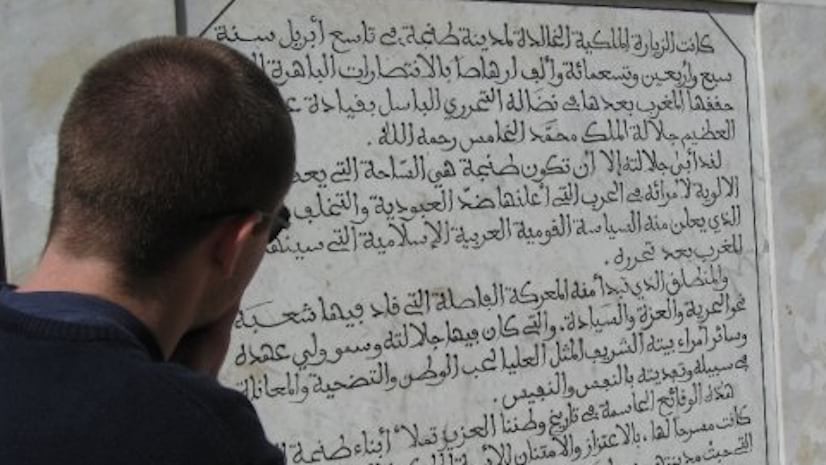 كانت الزيارة الملكية الخالدة لمدينة طنجة في تاسع أبريل سنة
سبع وأربعين وتسعمائة وألف إرهاصا بالانتصارات الباهرة
حققها المغرب بعدها في نضاله التحرري الباسل بقيادة
العظيم جلالة الملك محمد الخامس رحمه الله .
لقد أبى جلالته إلا أن تكون طنجة هي الساحة التي
الألوية لأمرائه في الحرب التي أعلنها ضدّ العبودية والتخلف
الذي يعلن منه السياسة القومية العربية الإسلامية التي
المغرب بعد تحرره .
والمنطلق الذي تبدأ منه المعركة الفاصلة التي قاد فيها شعبه
نحو الحرية والعزة والسيادة . والتي كان فيها جلالته وسمو ولي عهده
وسائر أمراء بيته الشريف المثل العليا لحب الوطن والتضحية والمعاناة
في سبيله وتفديته بالنفس والنفيس .
هذه الوقائع الحاسمة في تاريخ وطننا العزيز تملأ أبناء طنجة
كانت مسرحا لها ، بالاعتزاز والامتنان
التي